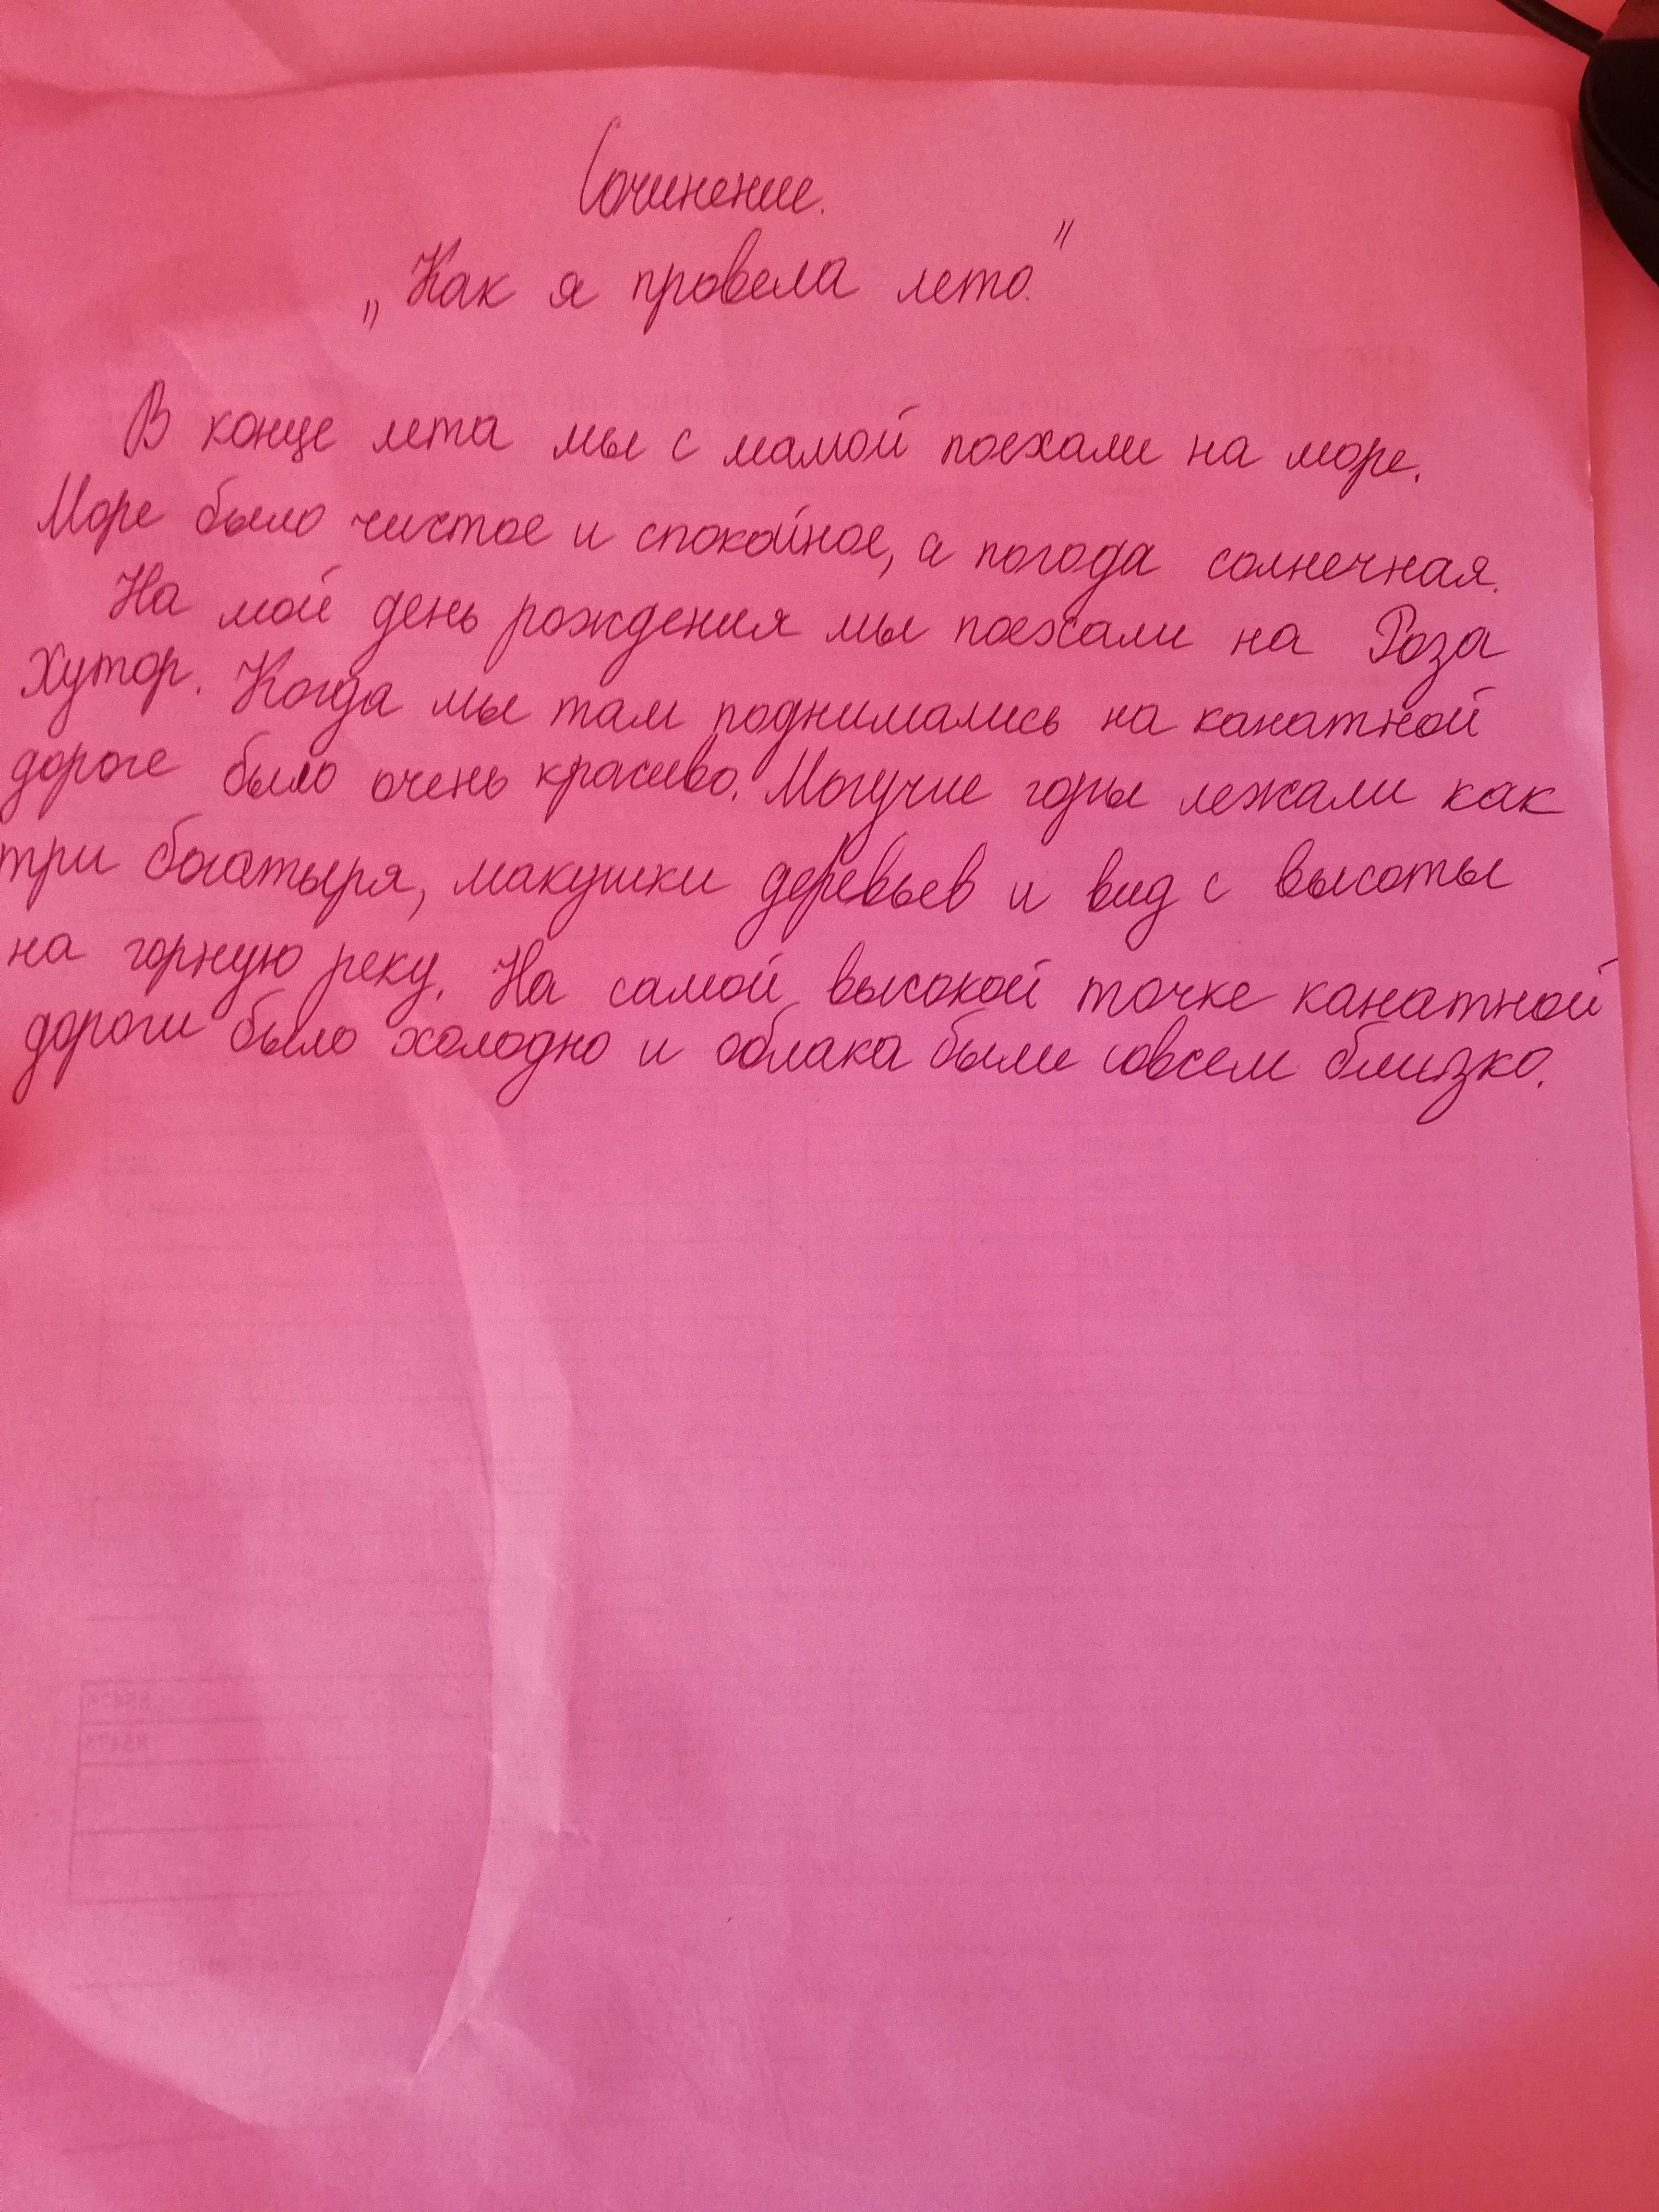 Сочинение.
„Как я провела лето."
В конце лета мы с мамой поехали на море.
Море было чистое и спокойное, а погода солнечная.
На мой день рождения мы поехали на Роза
Хутор. Когда мы там поднимались на канатной
дороге было очень красиво. Могучие горы лежали как
три богатыря, макушки деревьев и вид с высоты
на горную реку. На самой высокой точке канатной
дороги было холодно и облака были совсем близко.